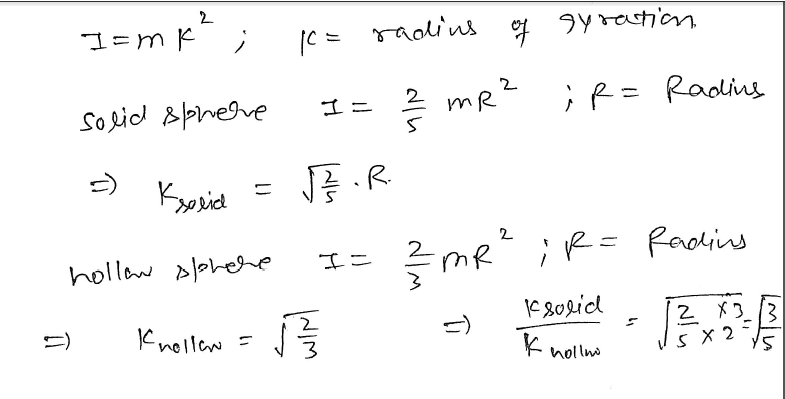 I = mK² ; K = radius of gyration
solid sphere I = 2/5 mR² ; R = Radius
=) Ksolid = √(2/5) . R.
hollow sphere I = 2/3 mR² ; R = Radius
=) Khollow = √(2/3) =) Ksolid / Khollow = √(2/5 × 3/2) = √(3/5)